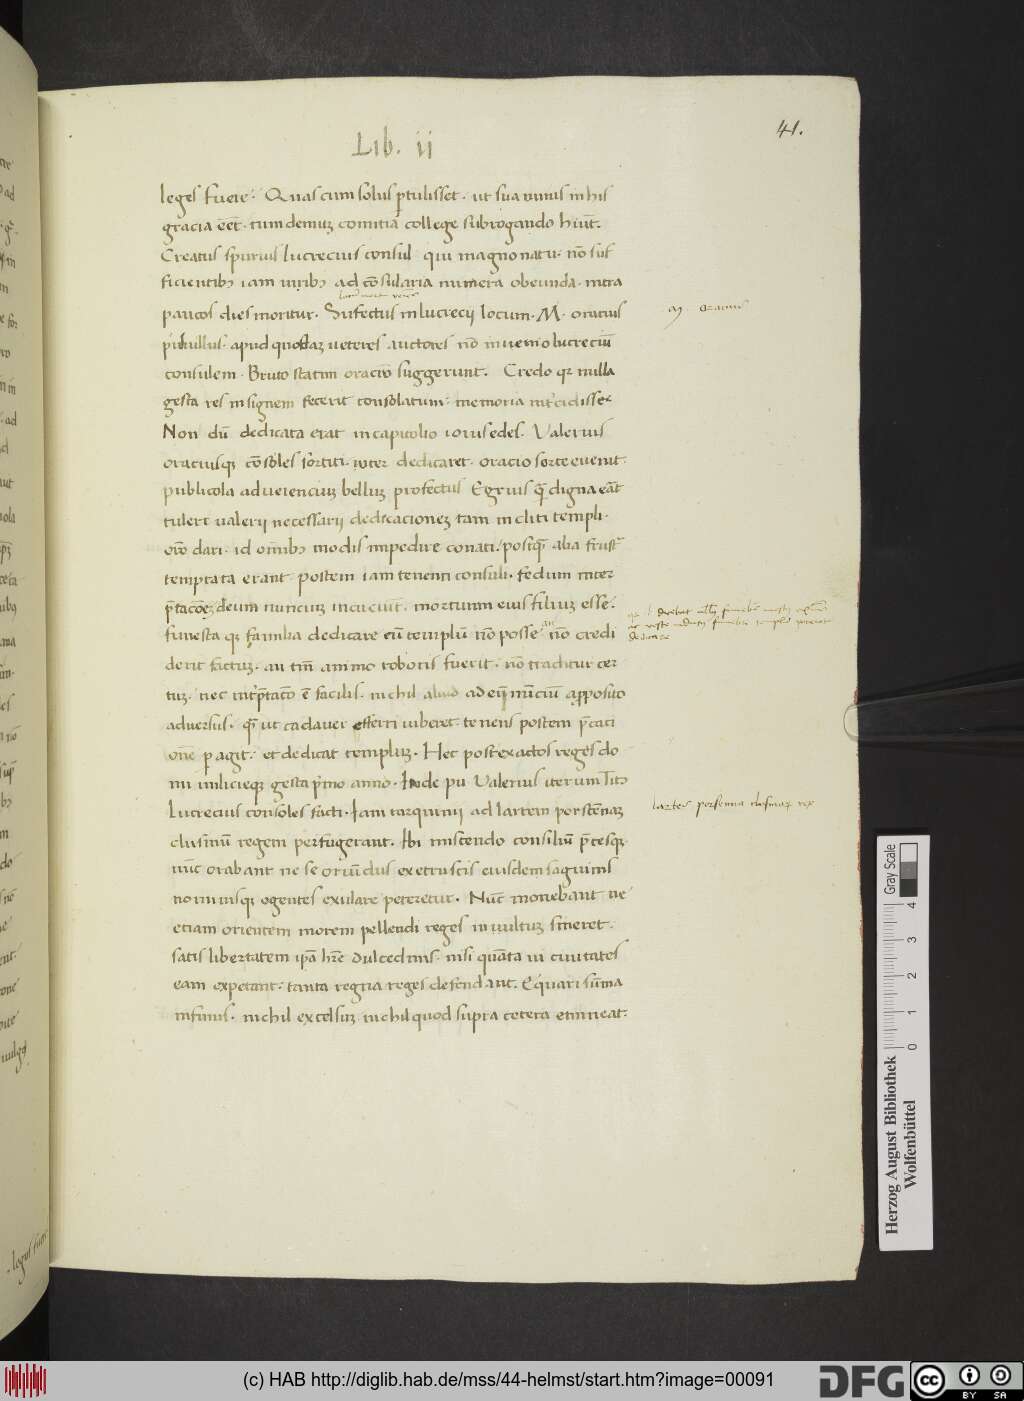 41.
Lib. ii
leges fuere. Quas cum solus ꝑtulisset. ut sua unius in his
gracia ēēt. tum demuꝫ comitia college subrogando hīut̄.
Creatus spurius lucrecius consul qui magno natu. nō suf
ficientibꝫ iam uiribꝫ ad cōsularia munera obeunda. intra
paucos dies moritur. Suffectus in lucrecij locum. M. oracius
M. oracius
puluillus. apud quosdaꝫ ueteres auctores nō inuenio lucreciū
consulem. Bruto statim oraciū suggerunt. Credo qꝛ nulla
gesta res insignem fecerit consolatum. memoria int̄cidisse.
Non dū dedicata erat in capitolio iouis edes. Valerius
oraciusqꝫ cōsoles sortiti. uter dedicaret. oracio sorte euenit.
publicola ad ueienciuꝫ belluꝫ profectus Egrius q̄ digna eāt
tulert ualerij necessarij dedicacioneꝫ tam incliti templi.
orō dari. id om̄ibꝫ modis impedire conati. postq̄ alia frust̄
temptata erant. postem iam tenenti consuli. fedum inter
p̄tacōeꝫ deum nunciuꝫ incuciūt. mortuum eius filiuꝫ esse.
funesta qꝫ familia dedicare eū templū nō posse. nō credi
derit factuꝫ. an tm̄ animo roboris fuerit. nō traditur cer
tuꝫ. nec int̄p̄tacō ē facilis. nichil aliud ad eū nūciū apposito
aduersus. q̄ ut cadauer efferri iuberet. tenens postem p̄caci
onē ꝑagit. et dedicat templuꝫ. Hec post exactos reges do
mi milicieqꝫ gesta p̄mo anno. Inde pu Valerius iterum Titꝫ
Lucrecius consoles facti. Iam tarquinij ad lartem porsēnaꝫ
lartes porsenna clusinorꝫ rex
clusinū regem perfugerant. Ibi miscendo consiliū p̄cesqꝫ
nūc orabant ne se oriūdos ex etruscis eiusdem saguinis
nominisqꝫ egentes exulare pateretur. Nūc monebant ne
etiam orientem morem pellendi reges inuultuꝫ sineret.
satis libertatem ip̄a hr̄e dulcedinis. nisi quāta ui ciuitates
eam expetant. tanta regna reges defendant. Equari sūma
infimis. nichil excelsuꝫ nichil quod supra cetera emineat.
Herzog August Bibliothek
Wolfenbüttel
Gray Scale
0 1 2 3 4
(c) HAB http://diglib.hab.de/mss/44-helmst/start.htm?image=00091
DFG
cc BY SA